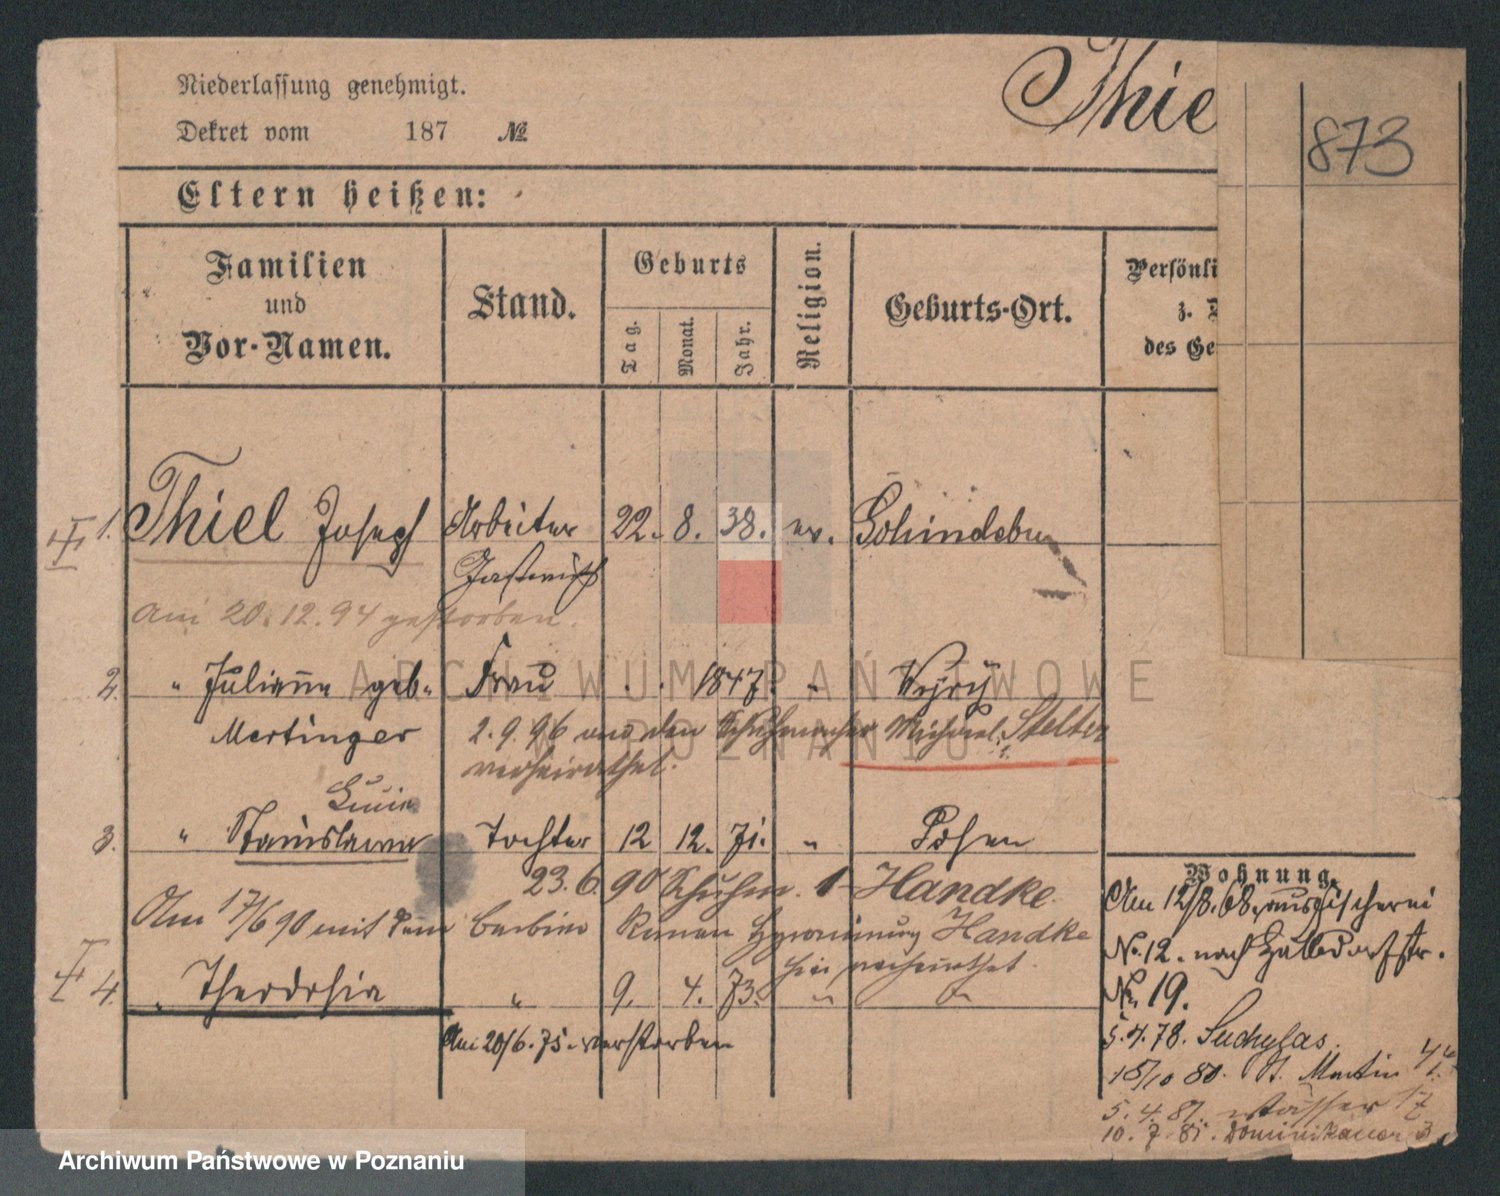 Niederlassung genehmigt.
Dekret vom 187 №
Thie
873
Eltern heißen:
Familien und Vor-Namen.
Stand.
Geburts
Tag.
Monat.
Jahr.
Religion.
Geburts-Ort.
Persönli
z.
des Ge
1. Thiel Joseph Arbeiter 22. 8. 38. ev.
am 20.12.94 gestorben.
2. " Julianna geb. Frau 1847. "
Mertinger 2.9.96 Michael Stelter
verheirathet.
3. " Stanislawa Tochter 12 12. 71. " Posen
23.6.90 Schuhm. Handke
Am 17/6 90 mit dem Handke
hier verheirathet.
4. " Theodosia " 9. 4. 73. " "
Am 20/6. 75. verstorben
Wohnung.
Am 12/8. 68. aus Fischerei
No. 12. nach Halbdorfstr.
No. 19.
5.4.78.
15/10 80. St. Martin
5.4.81.
10.7.85. Dominikaner 3
ARCHIWUM PAŃSTWOWE
W POZNANIU
Archiwum Państwowe w Poznaniu